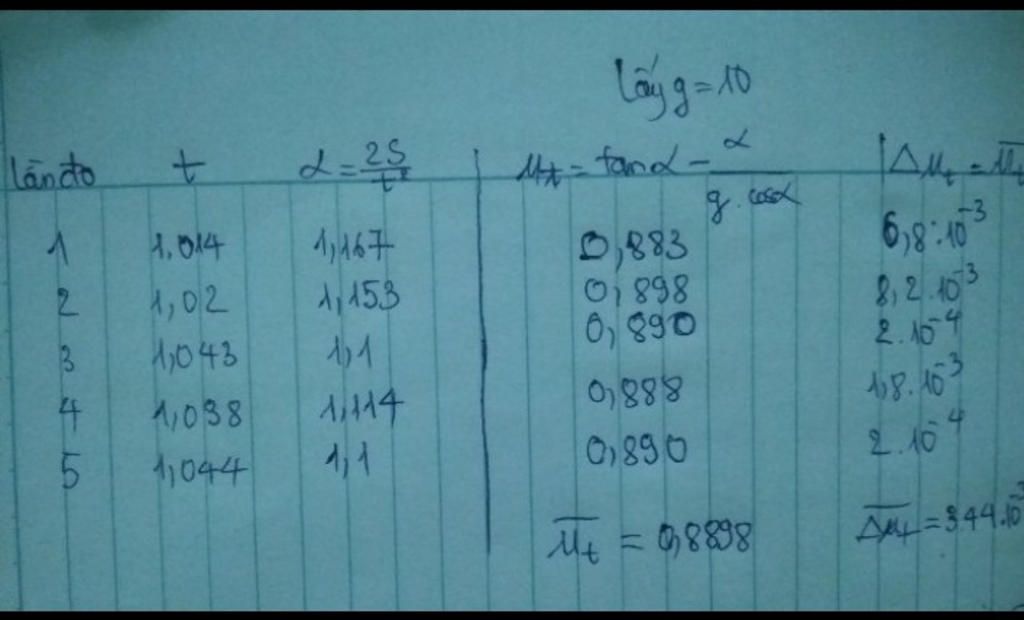 lấy g = 10
lần đo t α = 2S/t² μt = tanα - α/(g.cosα) Δμt = μ̅t
1 1,014 1,167 0,883 6,8.10⁻³
2 1,02 1,153 0,898 8,2.10⁻³
3 1,043 1,1 0,890 2.10⁻⁴
4 1,038 1,114 0,888 1,8.10⁻³
5 1,044 1,1 0,890 2.10⁻⁴
μ̅t = 0,8898 Δμ̅t = 3.44.10⁻³